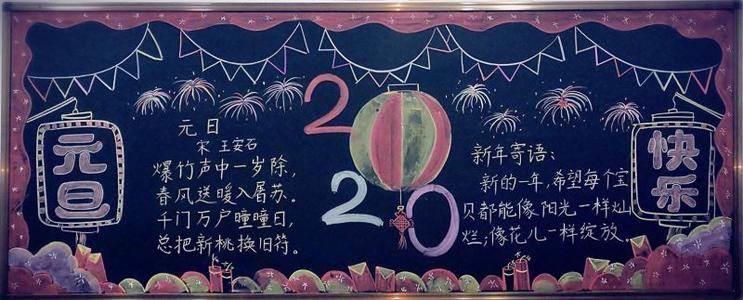 元旦
元日
宋 王安石
爆竹声中一岁除，
春风送暖入屠苏。
千门万户曈曈日，
总把新桃换旧符。
2020
新年寄语：
新的一年，希望每个宝
贝都能像阳光一样灿
烂；像花儿一样绽放。
快乐